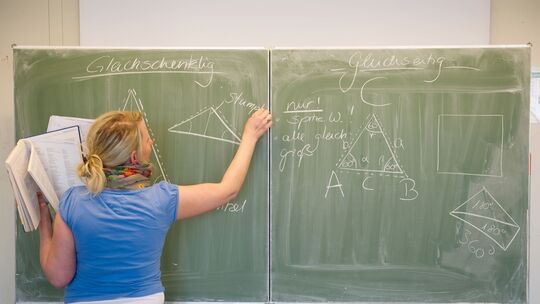 Gleichschenklig
Stum
Gleichseitig
nur! spitze W.!
alle gleich
groß
C
b a
A c B
180°
180°
360°